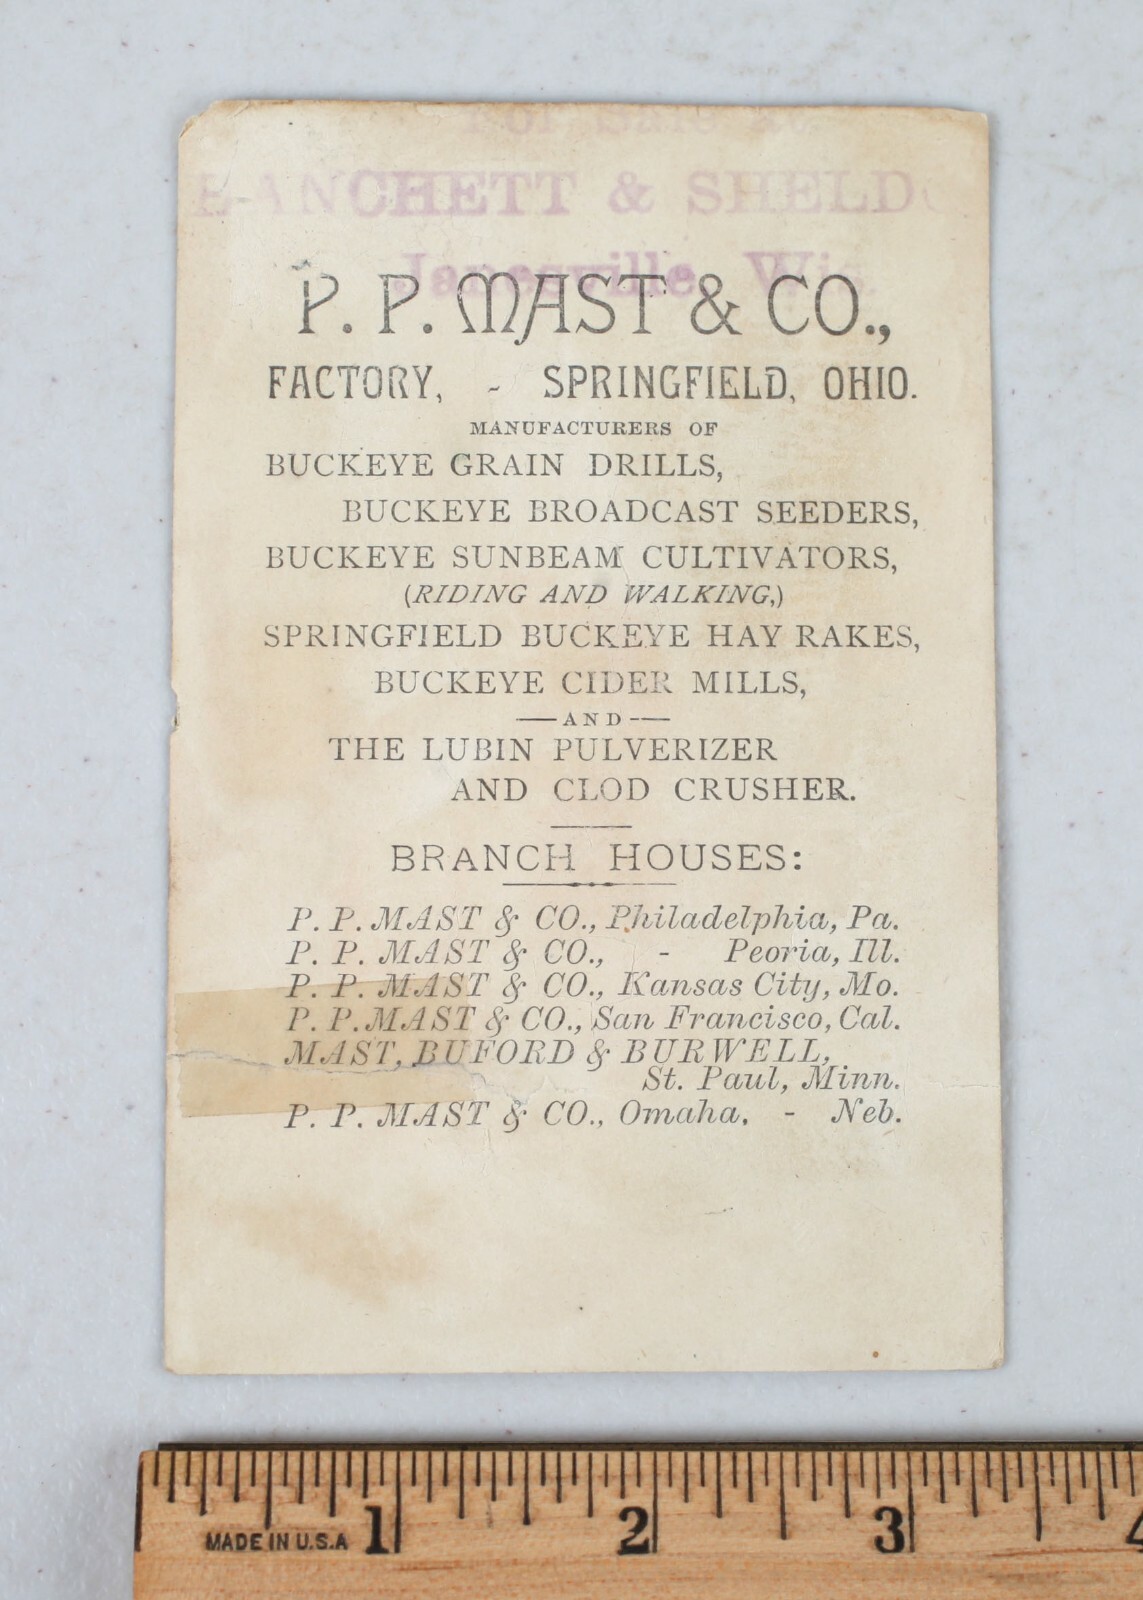 For Sale at
HANCHETT & SHELDO
Janesville, Wis.
P. P. MAST & CO.,
FACTORY, - SPRINGFIELD, OHIO.
MANUFACTURERS OF
BUCKEYE GRAIN DRILLS,
BUCKEYE BROADCAST SEEDERS,
BUCKEYE SUNBEAM CULTIVATORS,
(RIDING AND WALKING,)
SPRINGFIELD BUCKEYE HAY RAKES,
BUCKEYE CIDER MILLS,
—AND—
THE LUBIN PULVERIZER
AND CLOD CRUSHER.
BRANCH HOUSES:
P. P. MAST & CO., Philadelphia, Pa.
P. P. MAST & CO., - Peoria, Ill.
P. P. MAST & CO., Kansas City, Mo.
P. P. MAST & CO., San Francisco, Cal.
MAST, BUFORD & BURWELL,
St. Paul, Minn.
P. P. MAST & CO., Omaha, - Neb.
MADE IN U.S.A 1 2 3 4